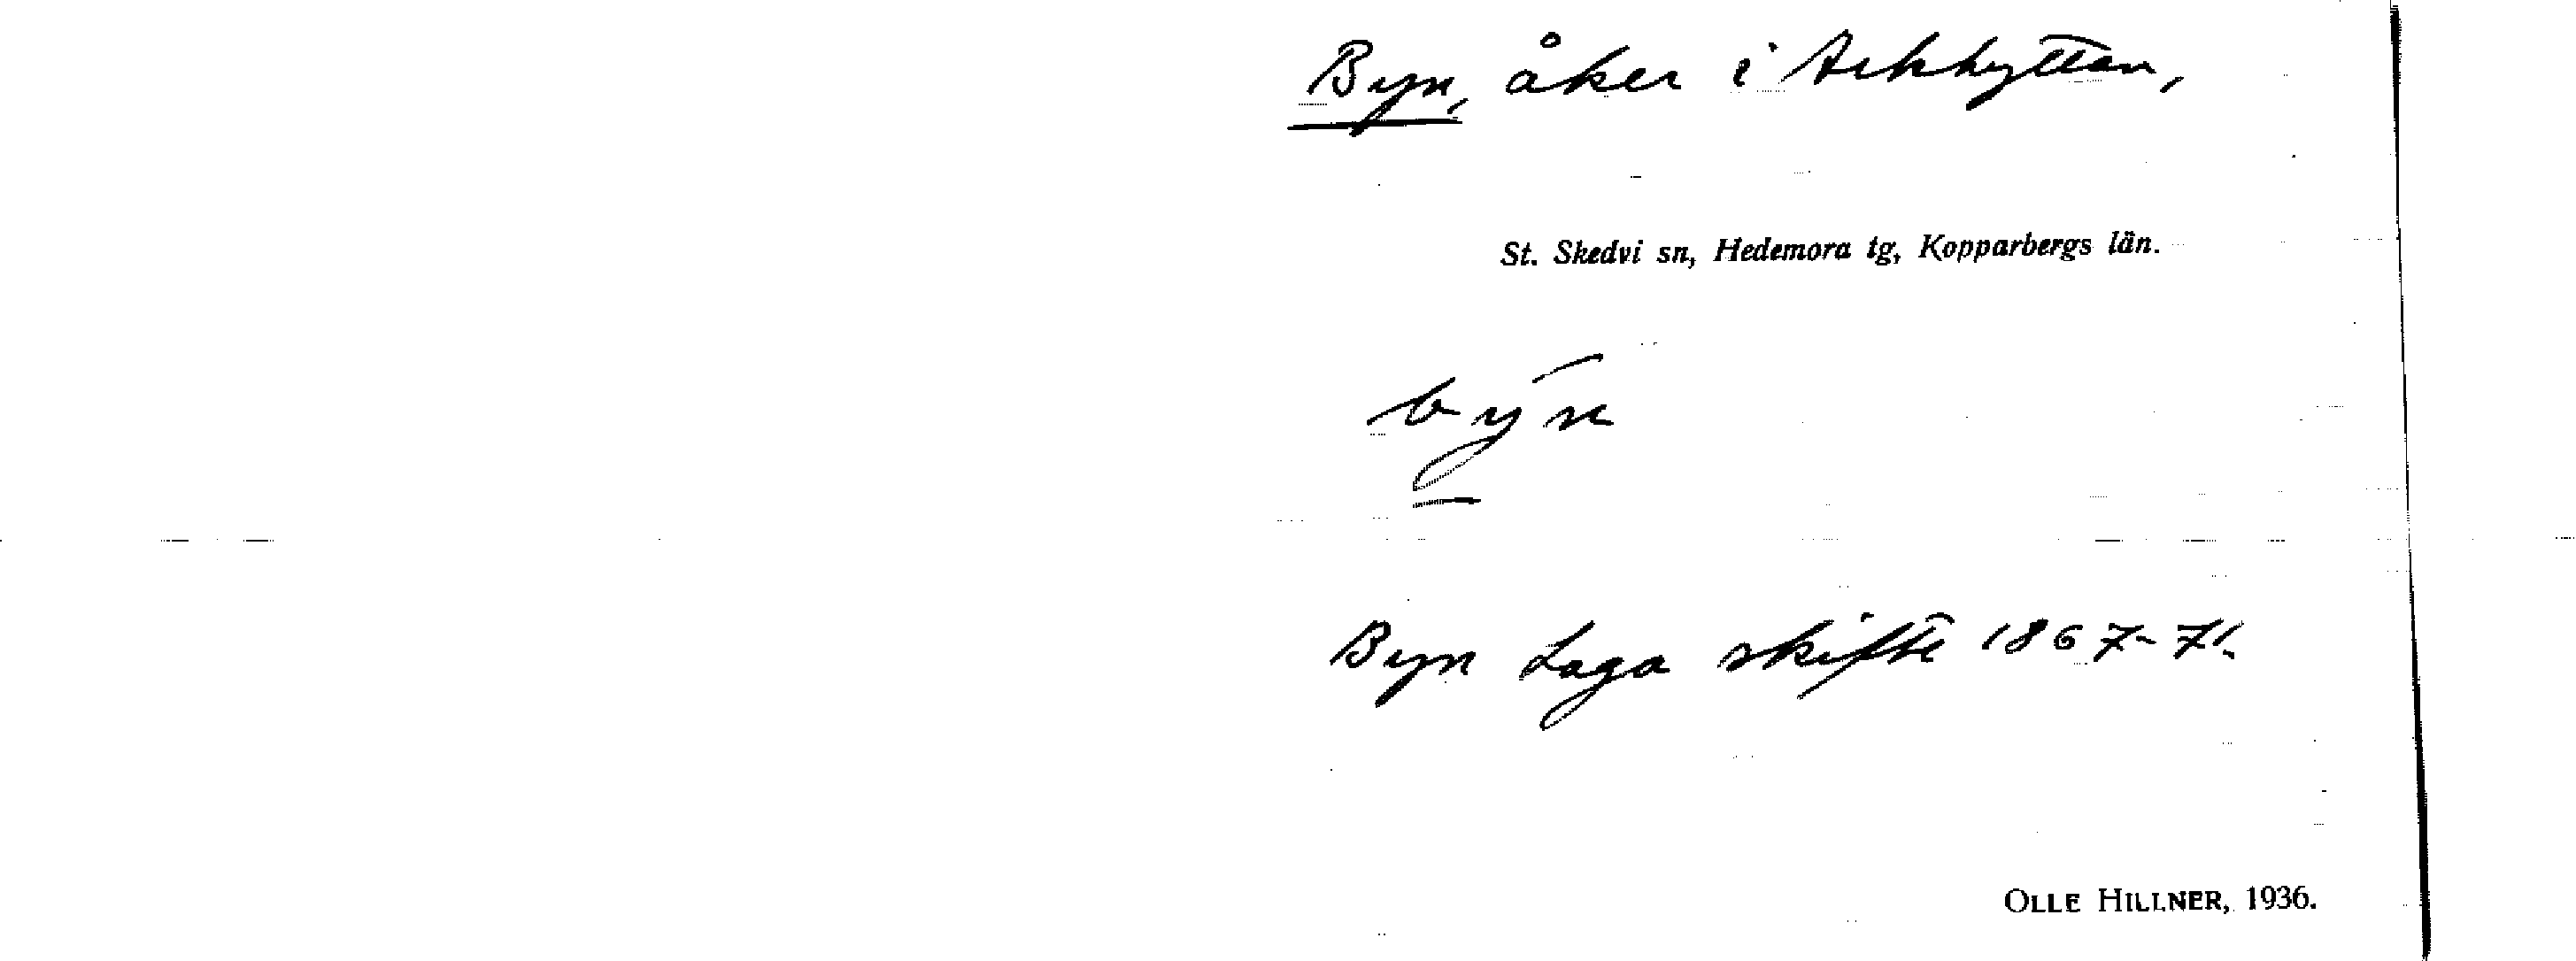 Byn, åker i Arkhyttan,
St. Skedvi sn, Hedemora tg, Kopparbergs län.
byn
Byn Laga skifte 1867-71.
OLLE HILLNER, 1936.